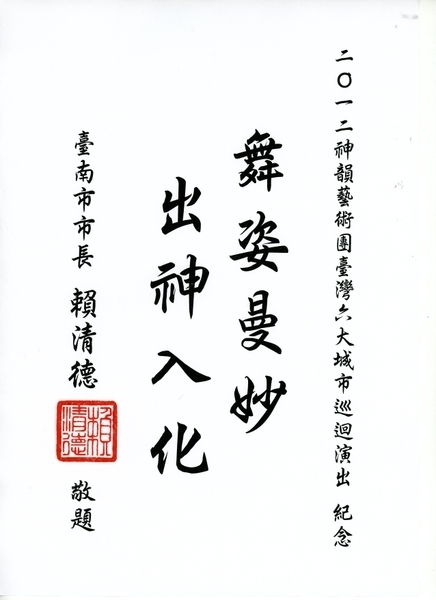 二〇一二神韻藝術團臺灣六大城市巡迴演出 紀念
舞姿曼妙
出神入化
臺南市市長 賴清德 敬題
賴清德